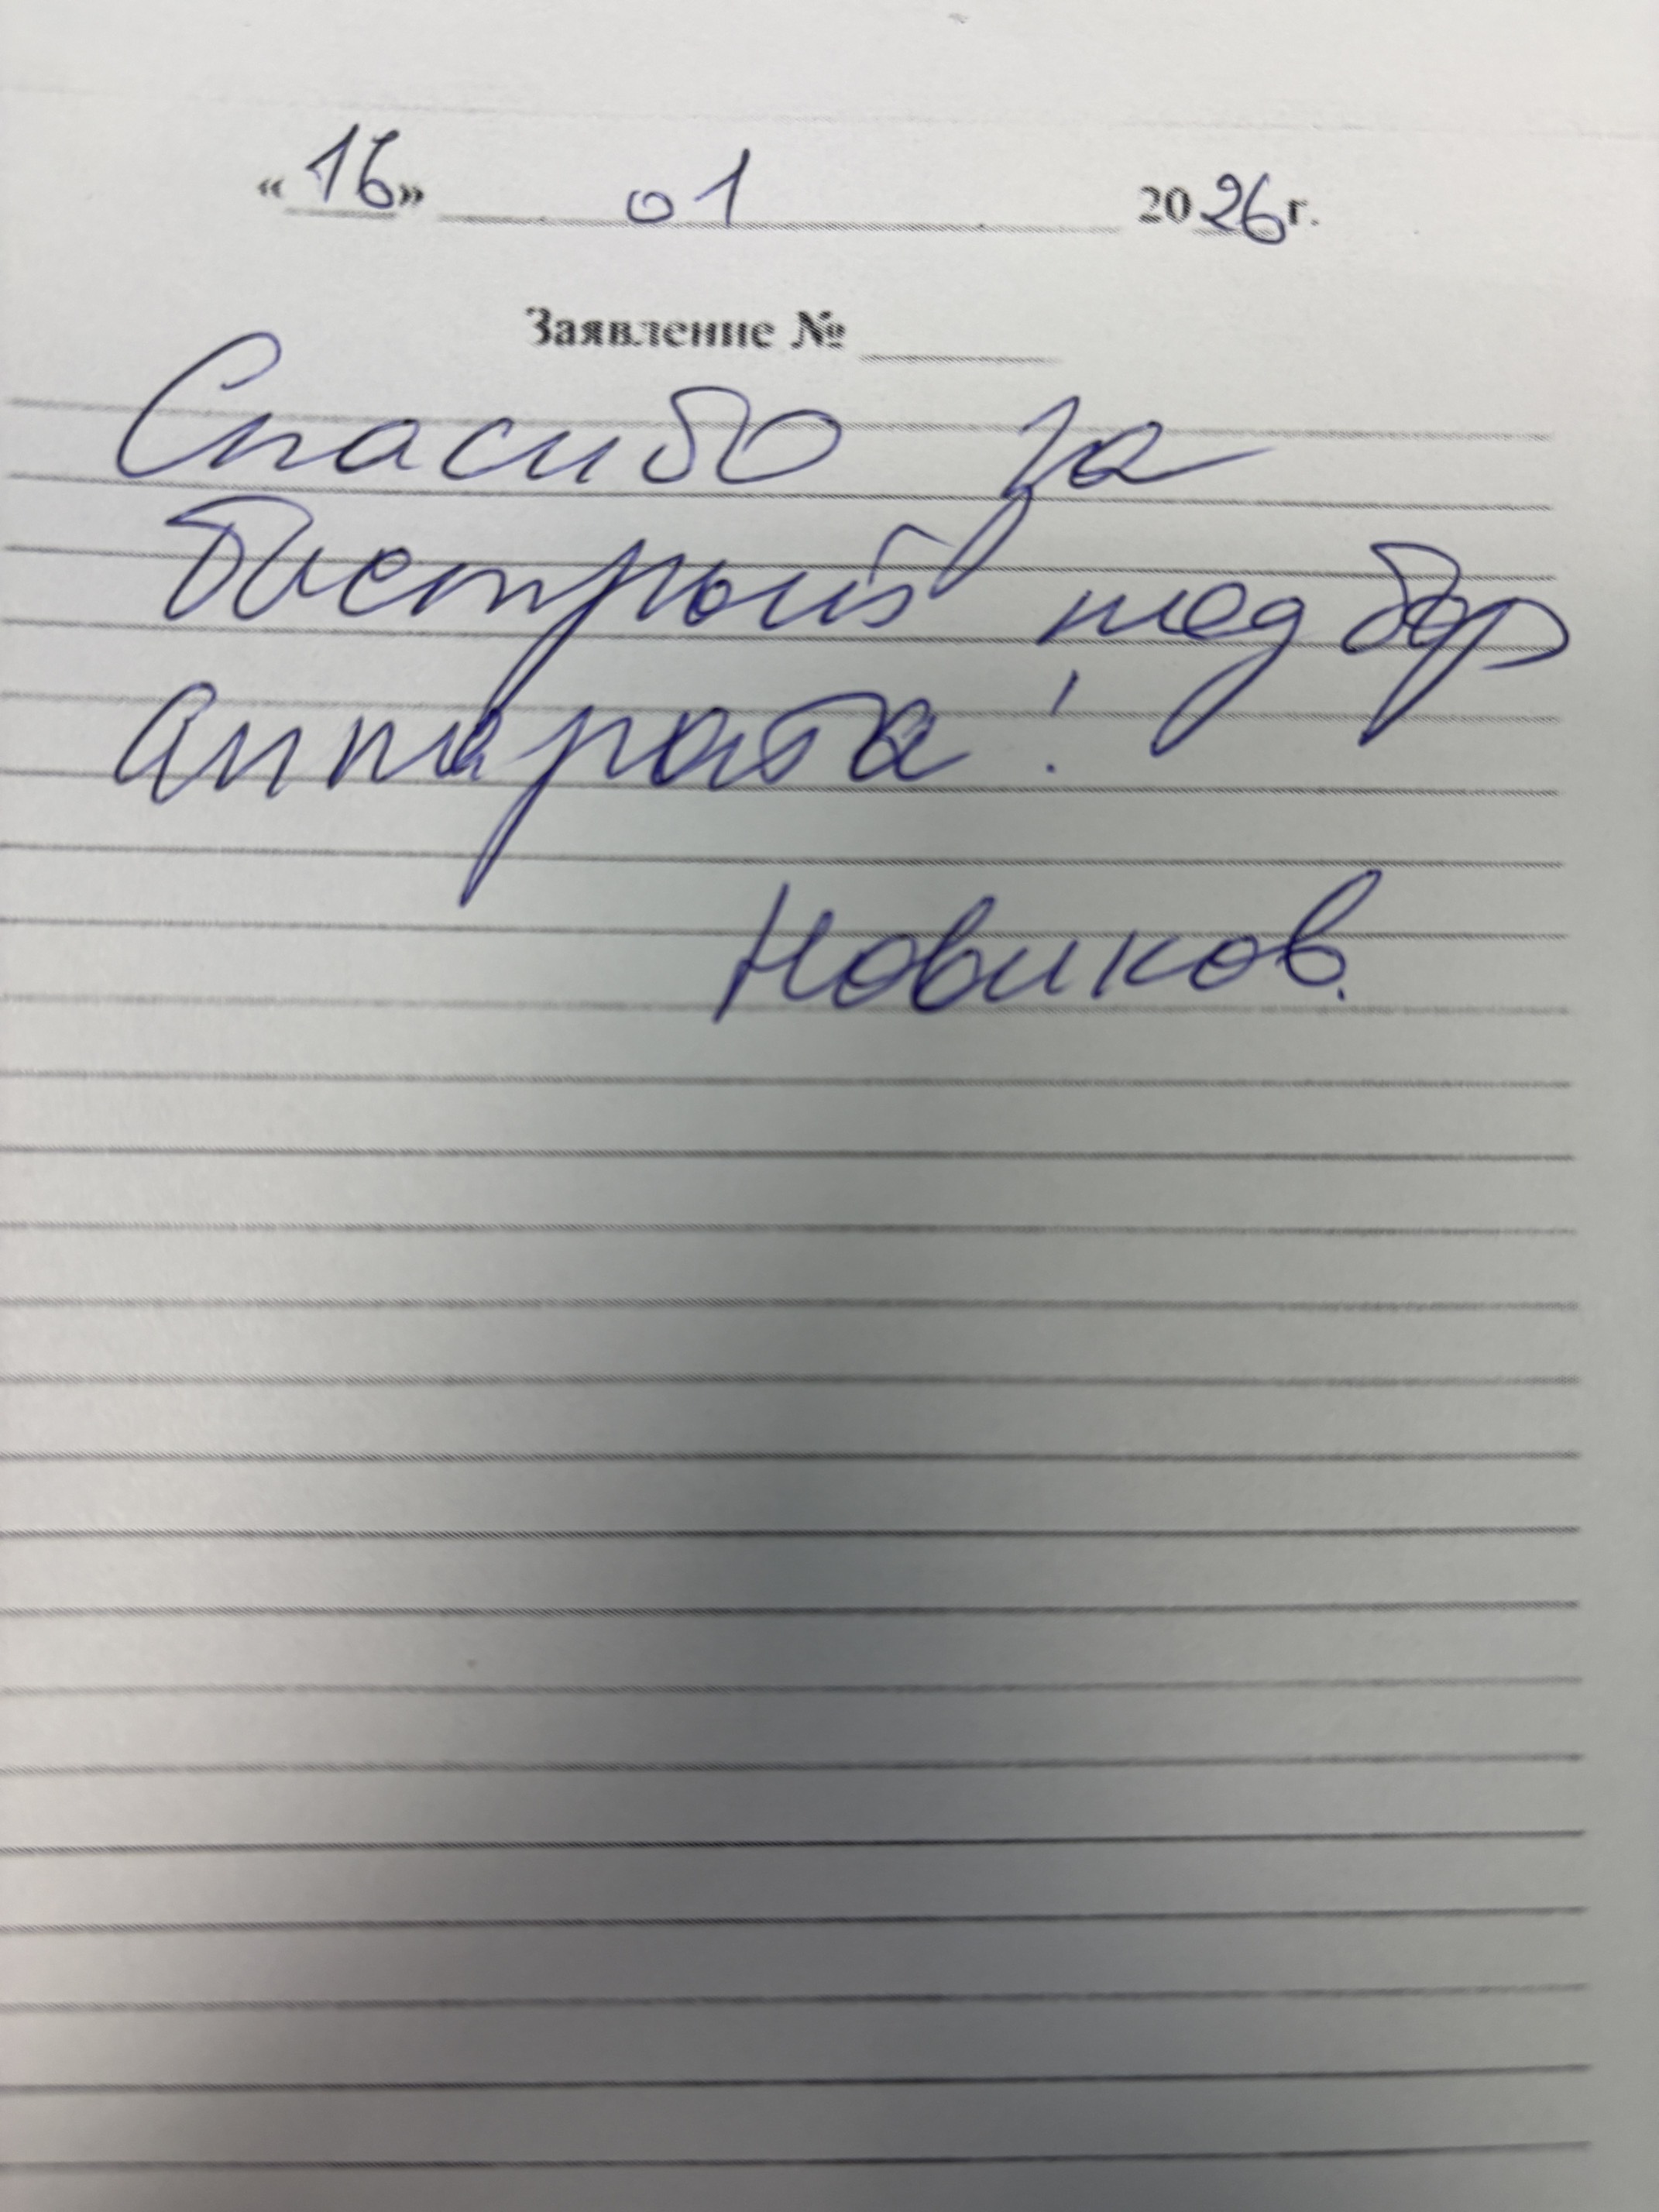 «16» 01 2026 г.
Заявление №
Спасибо за
быстрый подбор
аппарата!
Новиков.